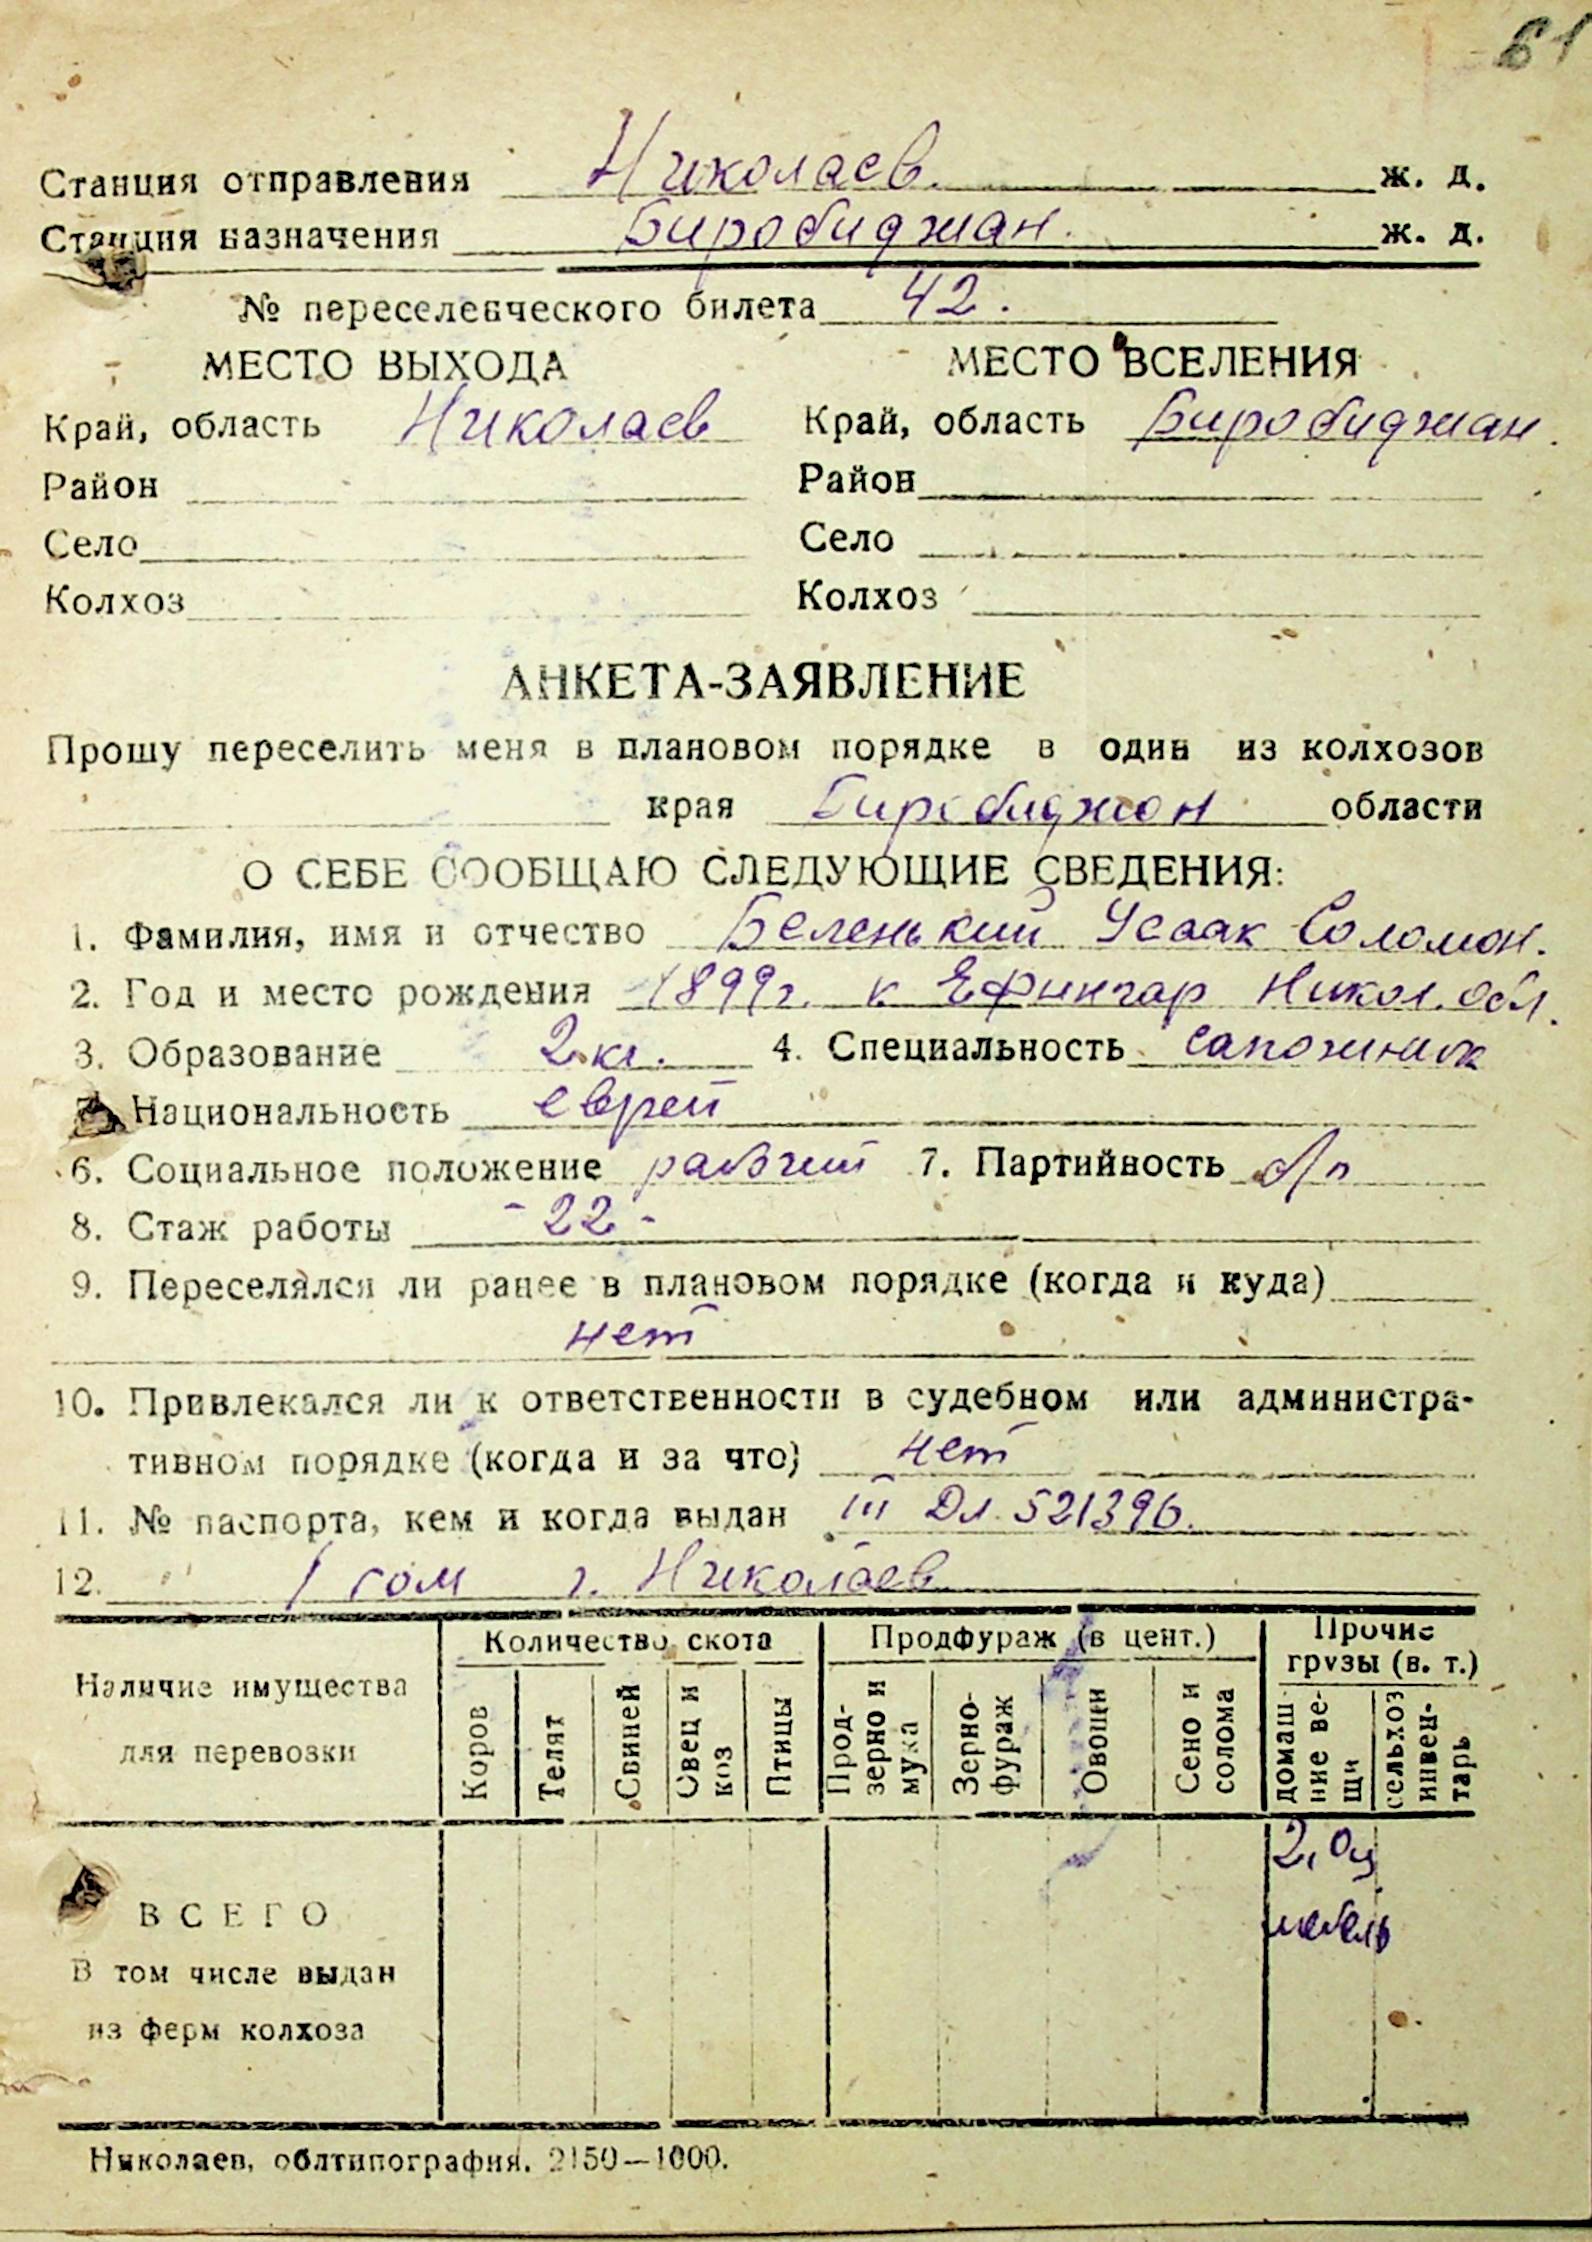 61
Станция отправления Николаев. ж. д.
Станция назначения Биробиджан. ж. д.
№ переселенческого билета 42.
МЕСТО ВЫХОДА
Край, область Николаев
Район
Село
Колхоз
МЕСТО ВСЕЛЕНИЯ
Край, область Биробиджан.
Район
Село
Колхоз
АНКЕТА-ЗАЯВЛЕНИЕ
Прошу переселить меня в плановом порядке в один из колхозов
края Биробиджан области
О СЕБЕ СООБЩАЮ СЛЕДУЮЩИЕ СВЕДЕНИЯ:
1. Фамилия, имя и отчество Беленький Усаак Соломон.
2. Год и место рождения 1899г. к Ефингар Никол. обл.
3. Образование 2 кл. 4. Специальность сапожник
Национальность еврей
6. Социальное положение рабочий 7. Партийность б/п
8. Стаж работы - 22 -
9. Переселялся ли ранее в плановом порядке (когда и куда)
нет
10. Привлекался ли к ответственности в судебном или администра-
тивном порядке (когда и за что) нет
11. № паспорта, кем и когда выдан III Дл. 521396.
12. 1 гом г. Николаев
Наличие имущества
для перевозки
Количество скота
Коров
Телят
Свиней
Овец и коз
Птицы
Продфураж (в цент.)
Прод-
зерно и
мука
Зерно-
фураж
Овощи
Сено и
солома
Прочие
грузы (в. т.)
домаш-
ние ве-
щи
сельхоз
инвен-
тарь
ВСЕГО
В том числе выдан
из ферм колхоза
2,0ц
мебель
Николаев, облтипография. 2150—1000.